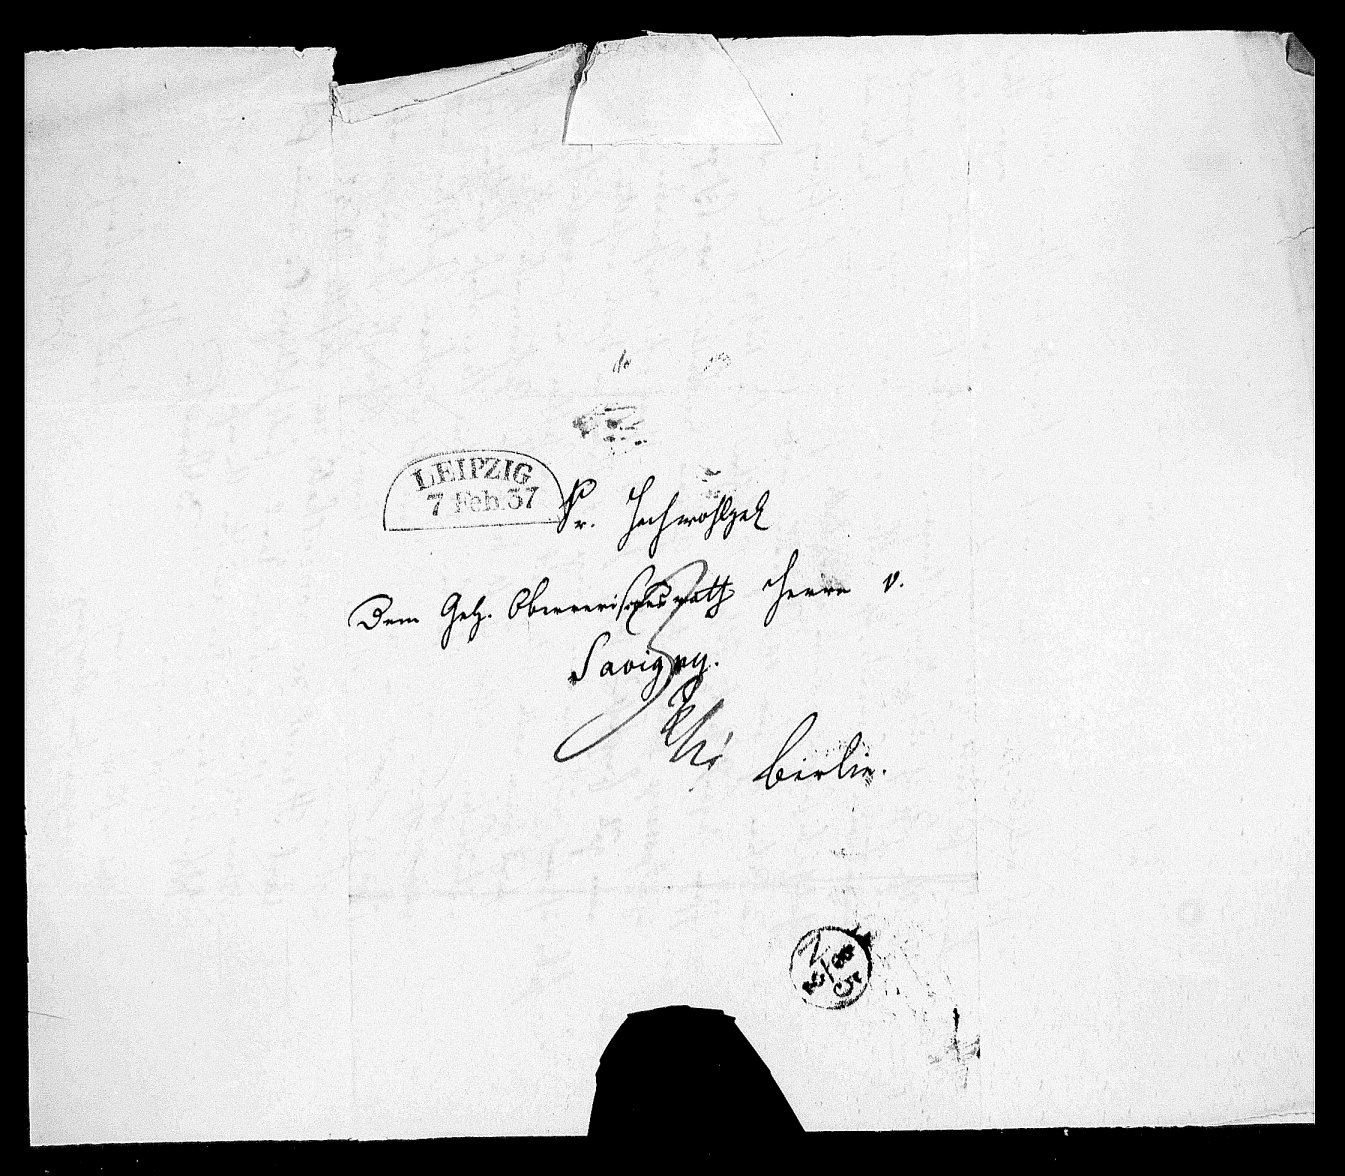 LEIPZIG
7 Feb. 37
Sr. Hochwohlgeb
Dem Geh. Oberrevisionsrath Herrn v.
Savigny.
Berlin.